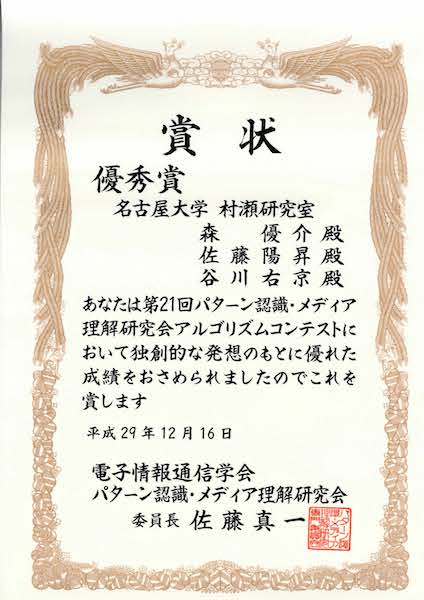 賞状
優秀賞
名古屋大学 村瀬研究室
森 優介殿
佐藤陽昇殿
谷川右京殿
あなたは第21回パターン認識・メディア
理解研究会アルゴリズムコンテストに
おいて独創的な発想のもとに優れた
成績をおさめられましたのでこれを
賞します
平成29年12月16日
電子情報通信学会
パターン認識・メディア理解研究会
委員長 佐藤真一